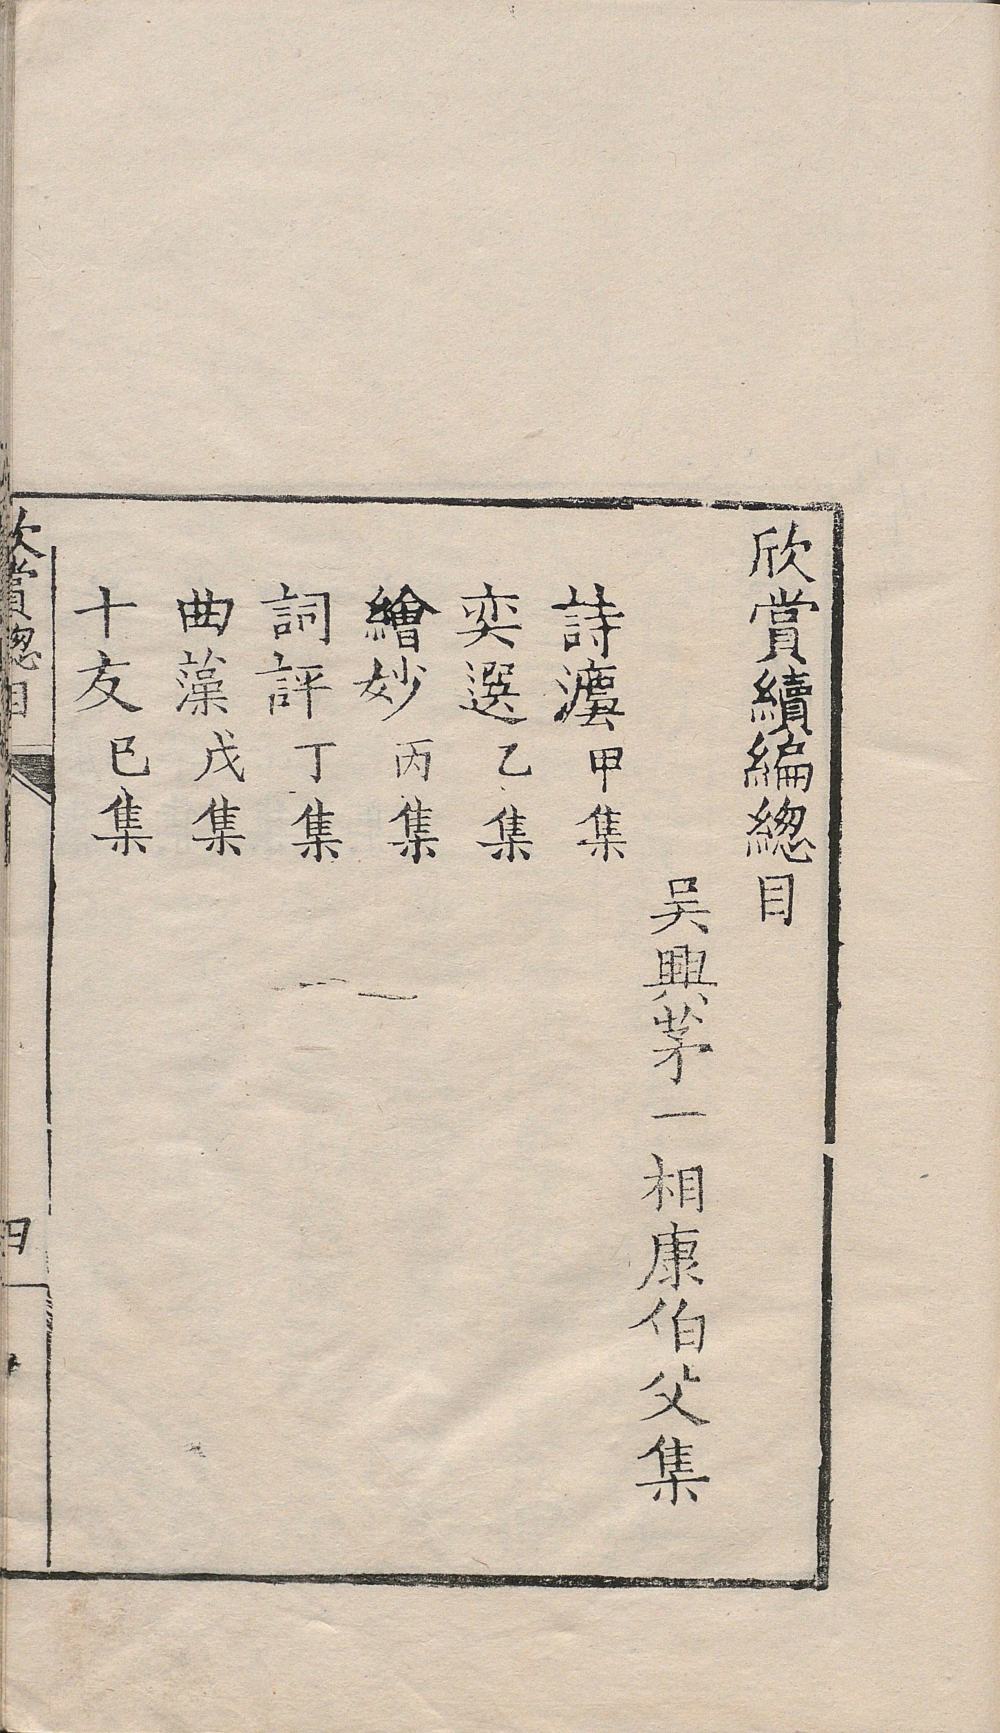 欣賞續編緫目
吳興茅一相康伯父集
詩灋甲集
奕選乙集
繪妙丙集
詞評丁集
曲藻戊集
十友巳集
欣賞緫目